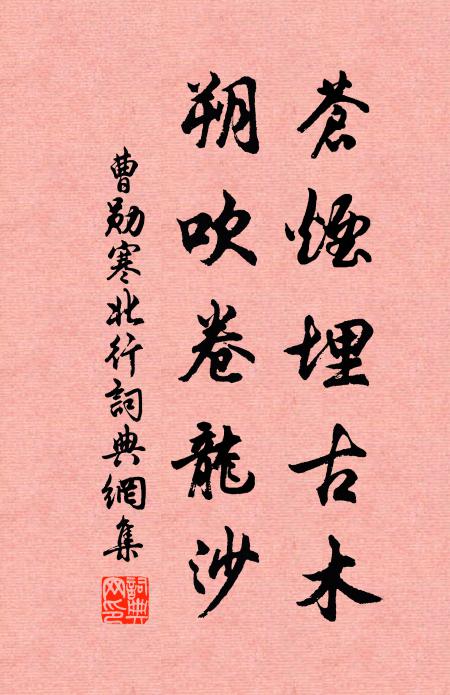 蒼煙埋古木
朔吹卷龍沙
曹勛寒北行詞典網集
詞典网印